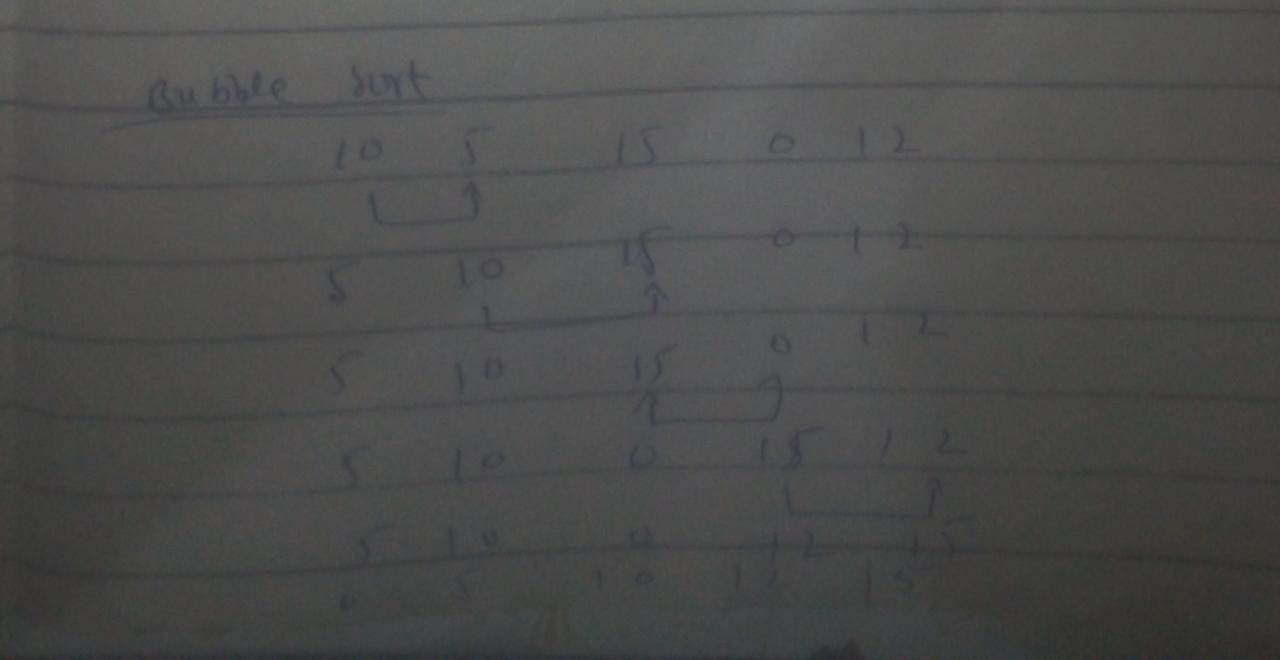 Bubble sort
10 5 15 0 12
5 10 15 0 12
5 10 15 0 12
5 10 0 15 12
5 10 0 12 15
0 5 10 12 15